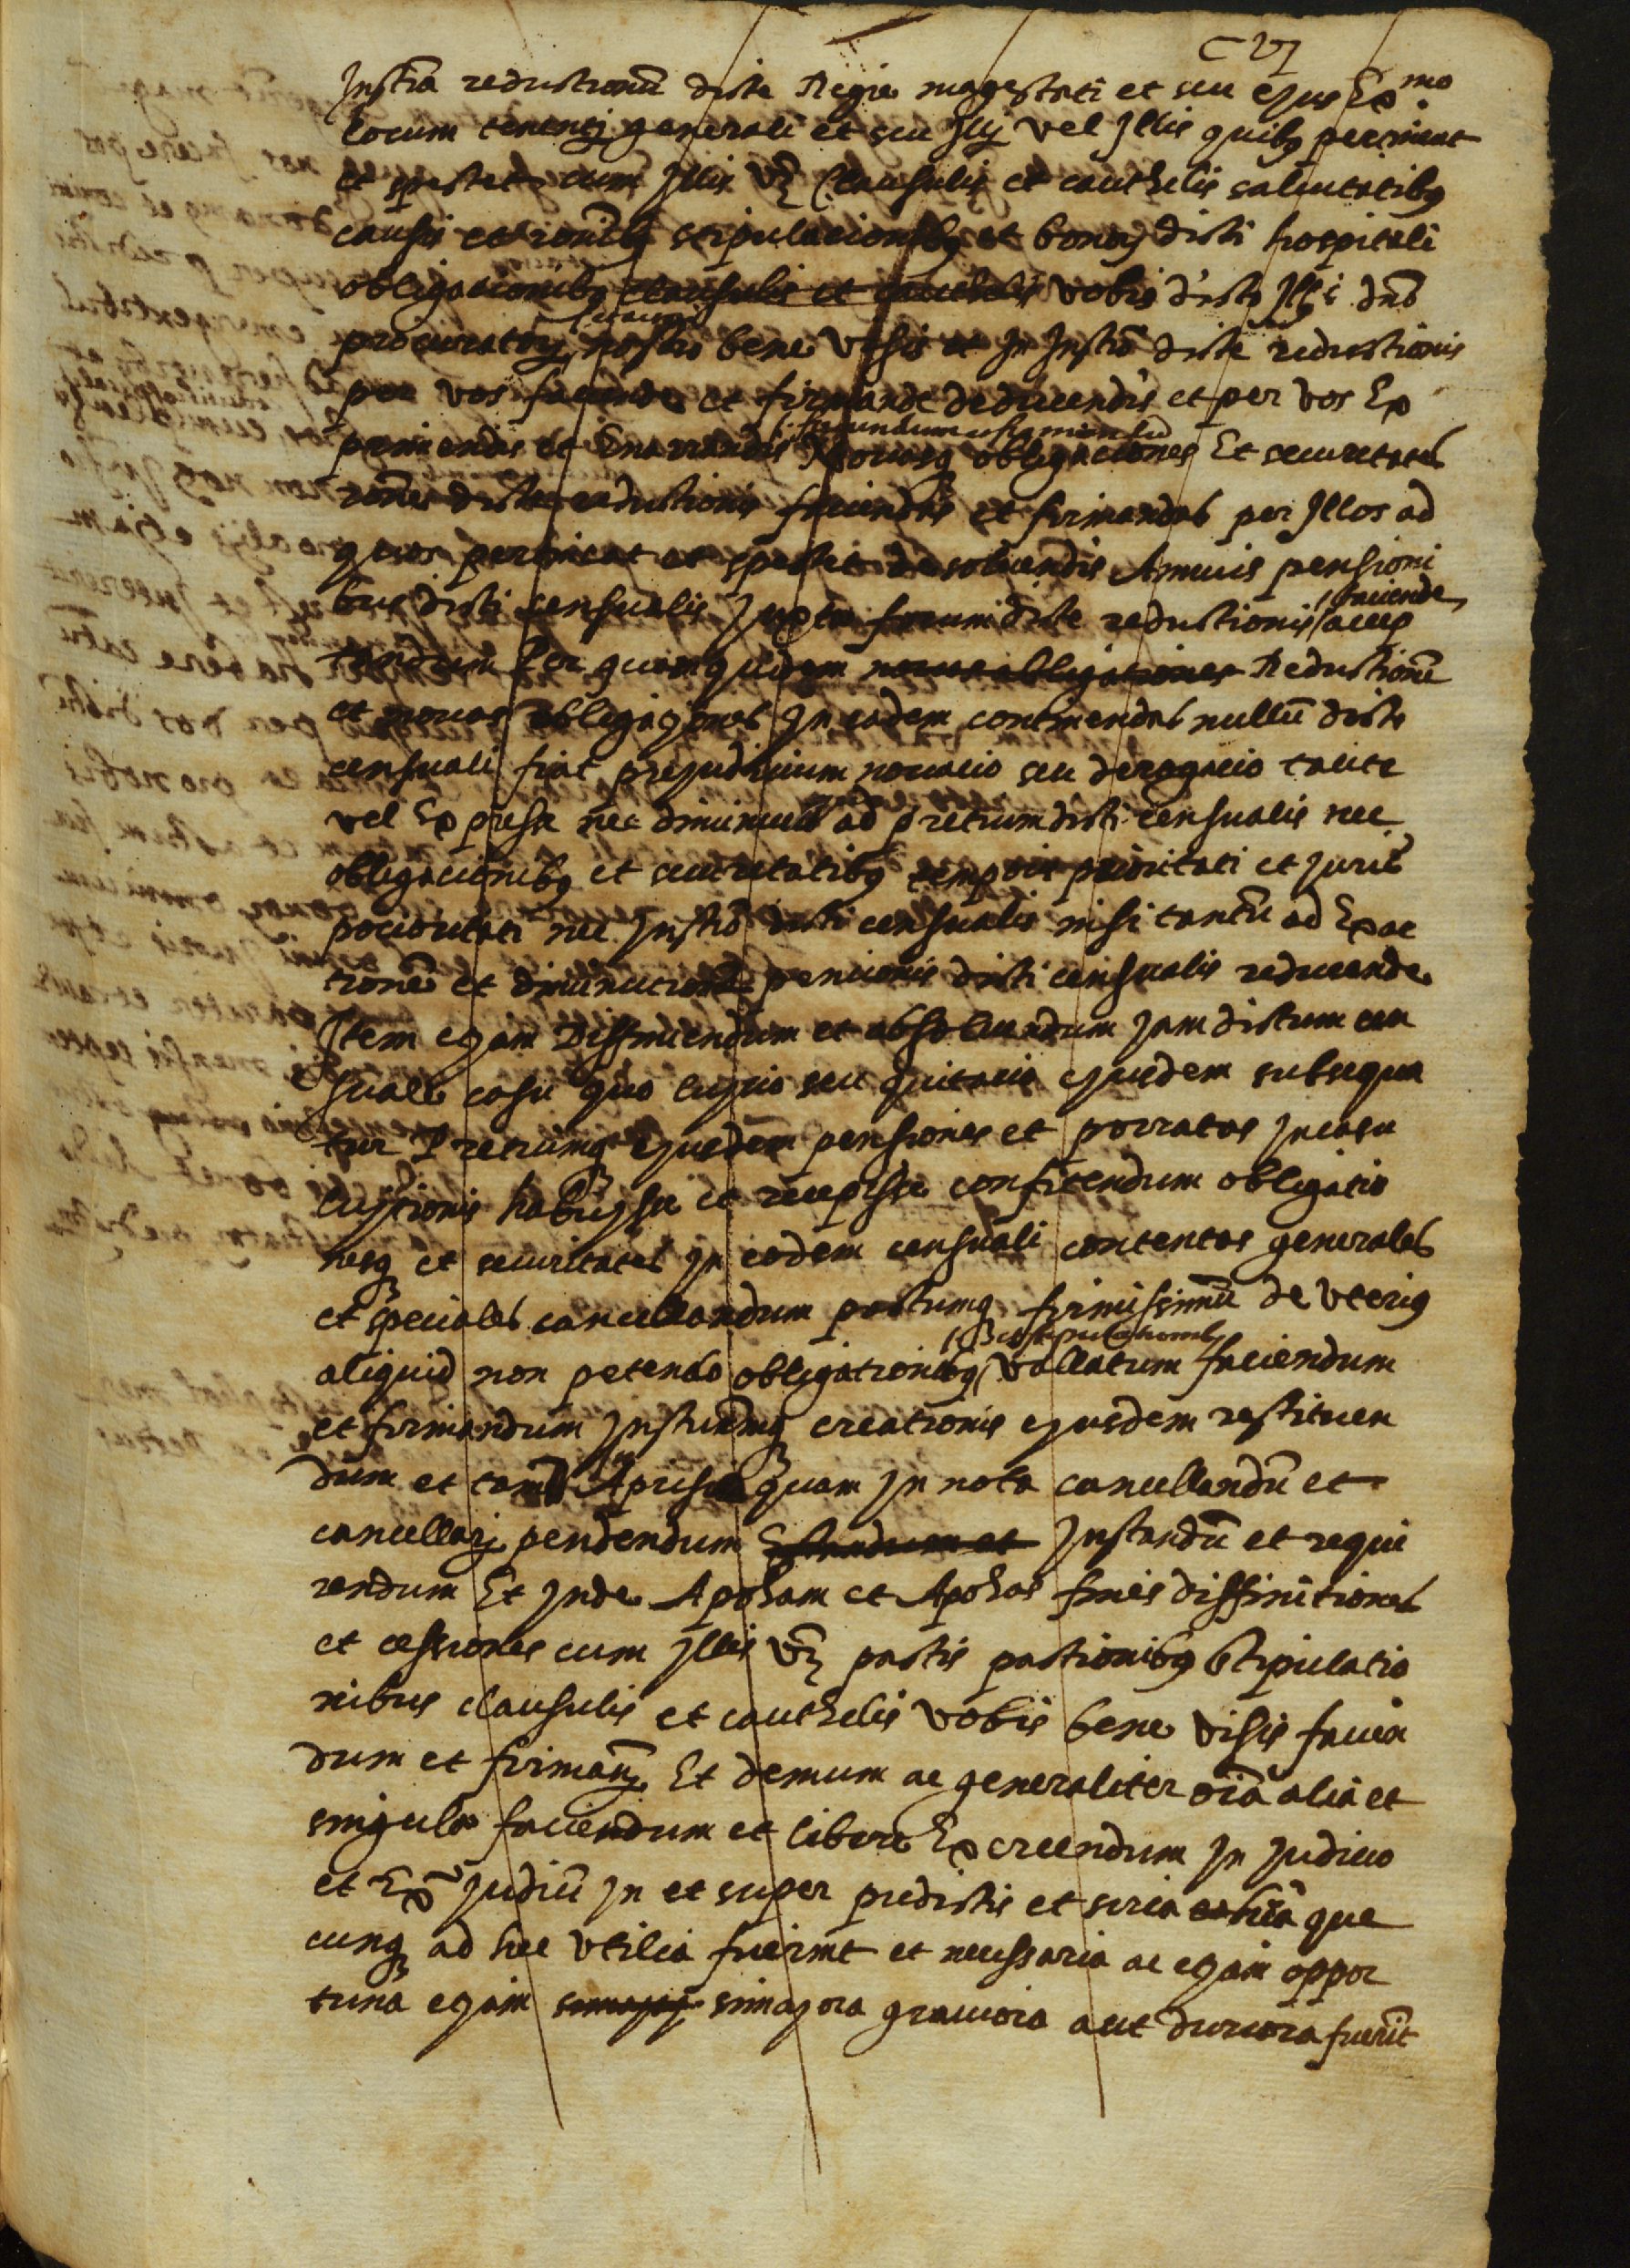 CVI
Instrã reductionũ dicte Regie magestati et seu ejus Exmo
locum tenentj generali et seu Illj vel Illis quibq pertineat
et spectet cum Illis Vz Clausulis et cauthelis salutatibq
causis et ronibq stipulacionibq et bonorj dicti hospitali
obligacionibq clausulis et cauthelis vobis dicto Illi dnõ
procuratorj nostro bene visis et In Instrõ dicte reductionis
per vos faciende et firmande deducendis et per vos Ex
primendis et Enarrandis Novasq obligaciones Et securitates
secundum
rone dicte reductionis faciendas et firmandas per Illos ad
quos pertineat et spectet de solvendis Annuis pensioni
bus dicti censualis Juxta forum dicte reductionis accep
faciende
tandum Per quam quidem novas obligationes Reductionẽ
et novas obligaciones In eadem continendas nullũ dicto
censuali fiat prejudicium novacio seu derogacio tacite
vel Expresse nec diminucio ad pretium dicti censualis nec
obligacionibq et securitatibq temporis prioritati et juris
pocioritati nec Instrõ dicti censualis nisi tantũ ad Exac
tionẽ et diminutionẽ pencionis dicti censualis reducende
Item ejam Diffiniendum et absolvendum jam dictum cen
suale casu quo luycio seu quitacio ejusdem subsequa
tur Pretiumq ejusdem pensiones et porratas In casu
luytionis habuysse et recepisse confitendum obligatio
nesq et securitates In eodem censuali contentas generales
et speciales cancellandum pactumq firmissimũ de Vterius
aliquid non petendo obligationibq vallatum faciendum
et stipulationibq
et firmandum Instrumq creationis ejusdem restituen
dum et tam Aprisia quam In nota cancellandũ et
cancellarj pendendum Instandũ et requi
rendum Et Inde Apoham et Apohas fines diffinitiones
et cessiones cum Illis Vz pactis pactionibq stipulatio
nibus clausulis et cauthelis vobis bene visis facien
dum et firmanz Et demum ac generaliter oiã alia et
singula faciendum et libere Excreendum In judicio
et Ex judiciũ In et super predictis et circa que
cunq ad hec vtilia fuerint et necessaria ac ejam oppor
tuna ejam simajora graviora aut duriora fuerĩt